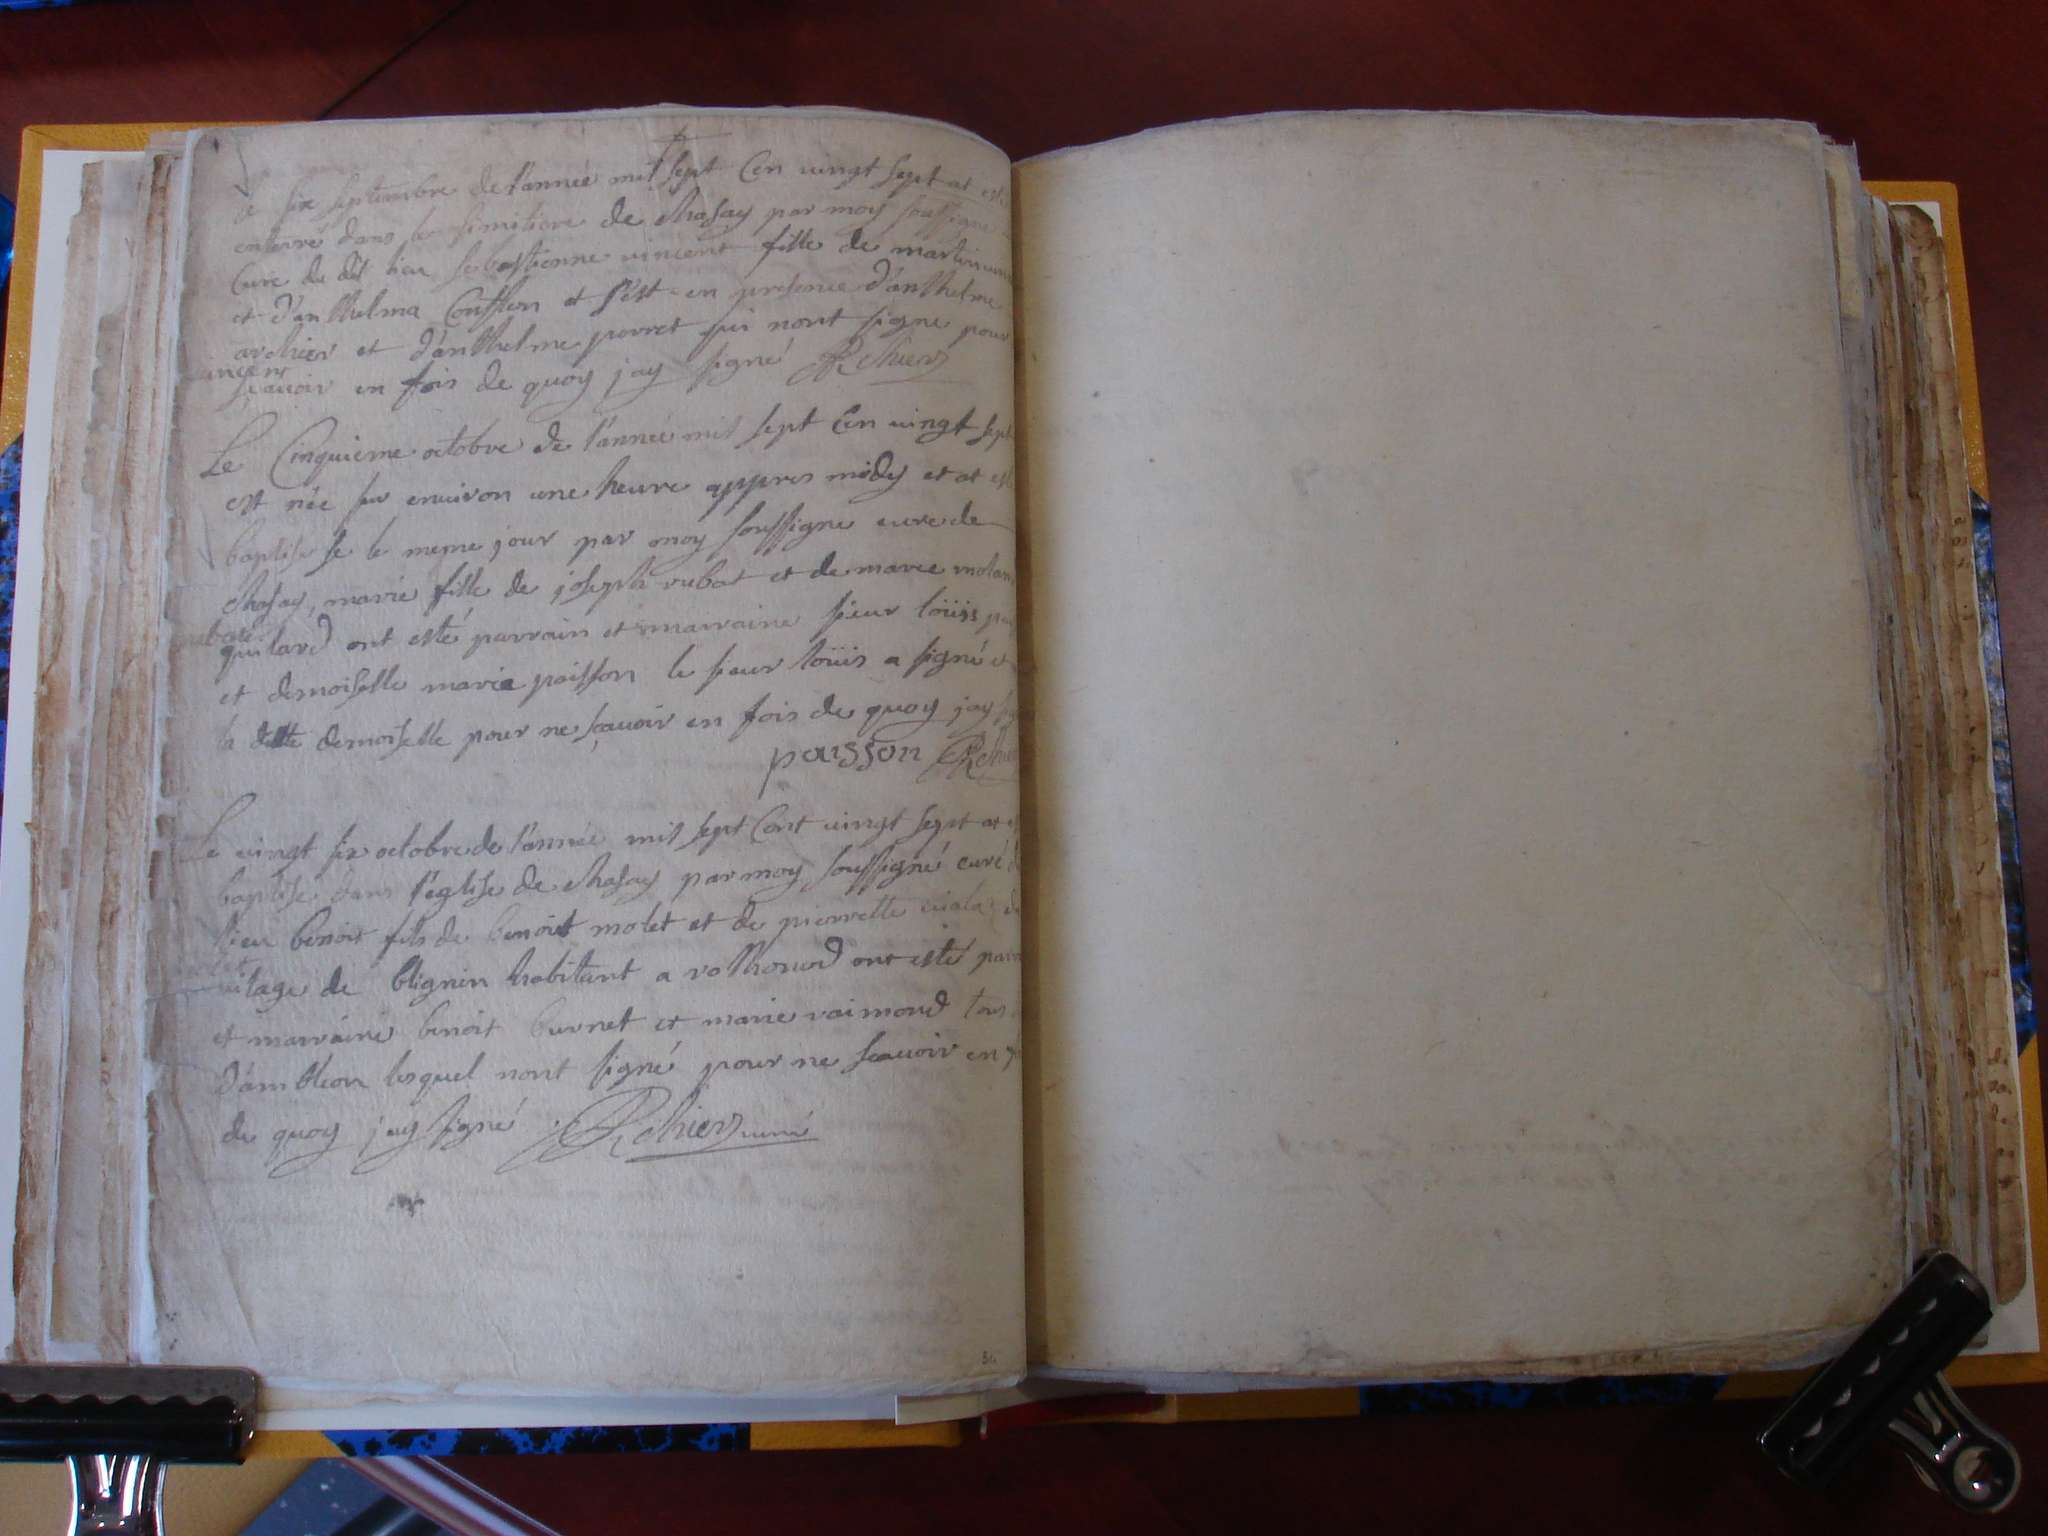 Le six septembre de l'année mil sept Cen vingt sept at esté
enterré dans le simitiere de chasay par moy soussigne
Cure du dit lieu sebastienne vincent fille de martin
et d'anthelma et s'est en presence d'anthelme
archier et d'anthelme perret qui nont signe pour
vincent
sçavoir en fois de quoy jay signé Archier
Le Cinquieme octobre de l'année mil sept Cen vingt sept
est née sur environ une heure appres midy et at esté
baptise se le meme jour par moy soussigne cure de
chasay, marie fille de joseph rubat et de marie
rubat
quilard ont esté parrain et marraine sieur loüis
et demoiselle marie poisson le sieur loüis a signé et
la ditte demoiselle pour ne sçavoir en fois de quoy jay
poisson Archier
Le vingt six octobre de l'année mil sept Cent vingt sept at
baptisé dans l'eglise de chasay par moy soussigné curé
lieu benoit fils de benoit molet et de pierrette
molet
vilage de blignin habitant a rothonod ont esté
et marraine benoit burnet et marie raimond tous
d'ambléon lesquel nont signé pour ne scavoir en
de quoy jay signé Archier curé